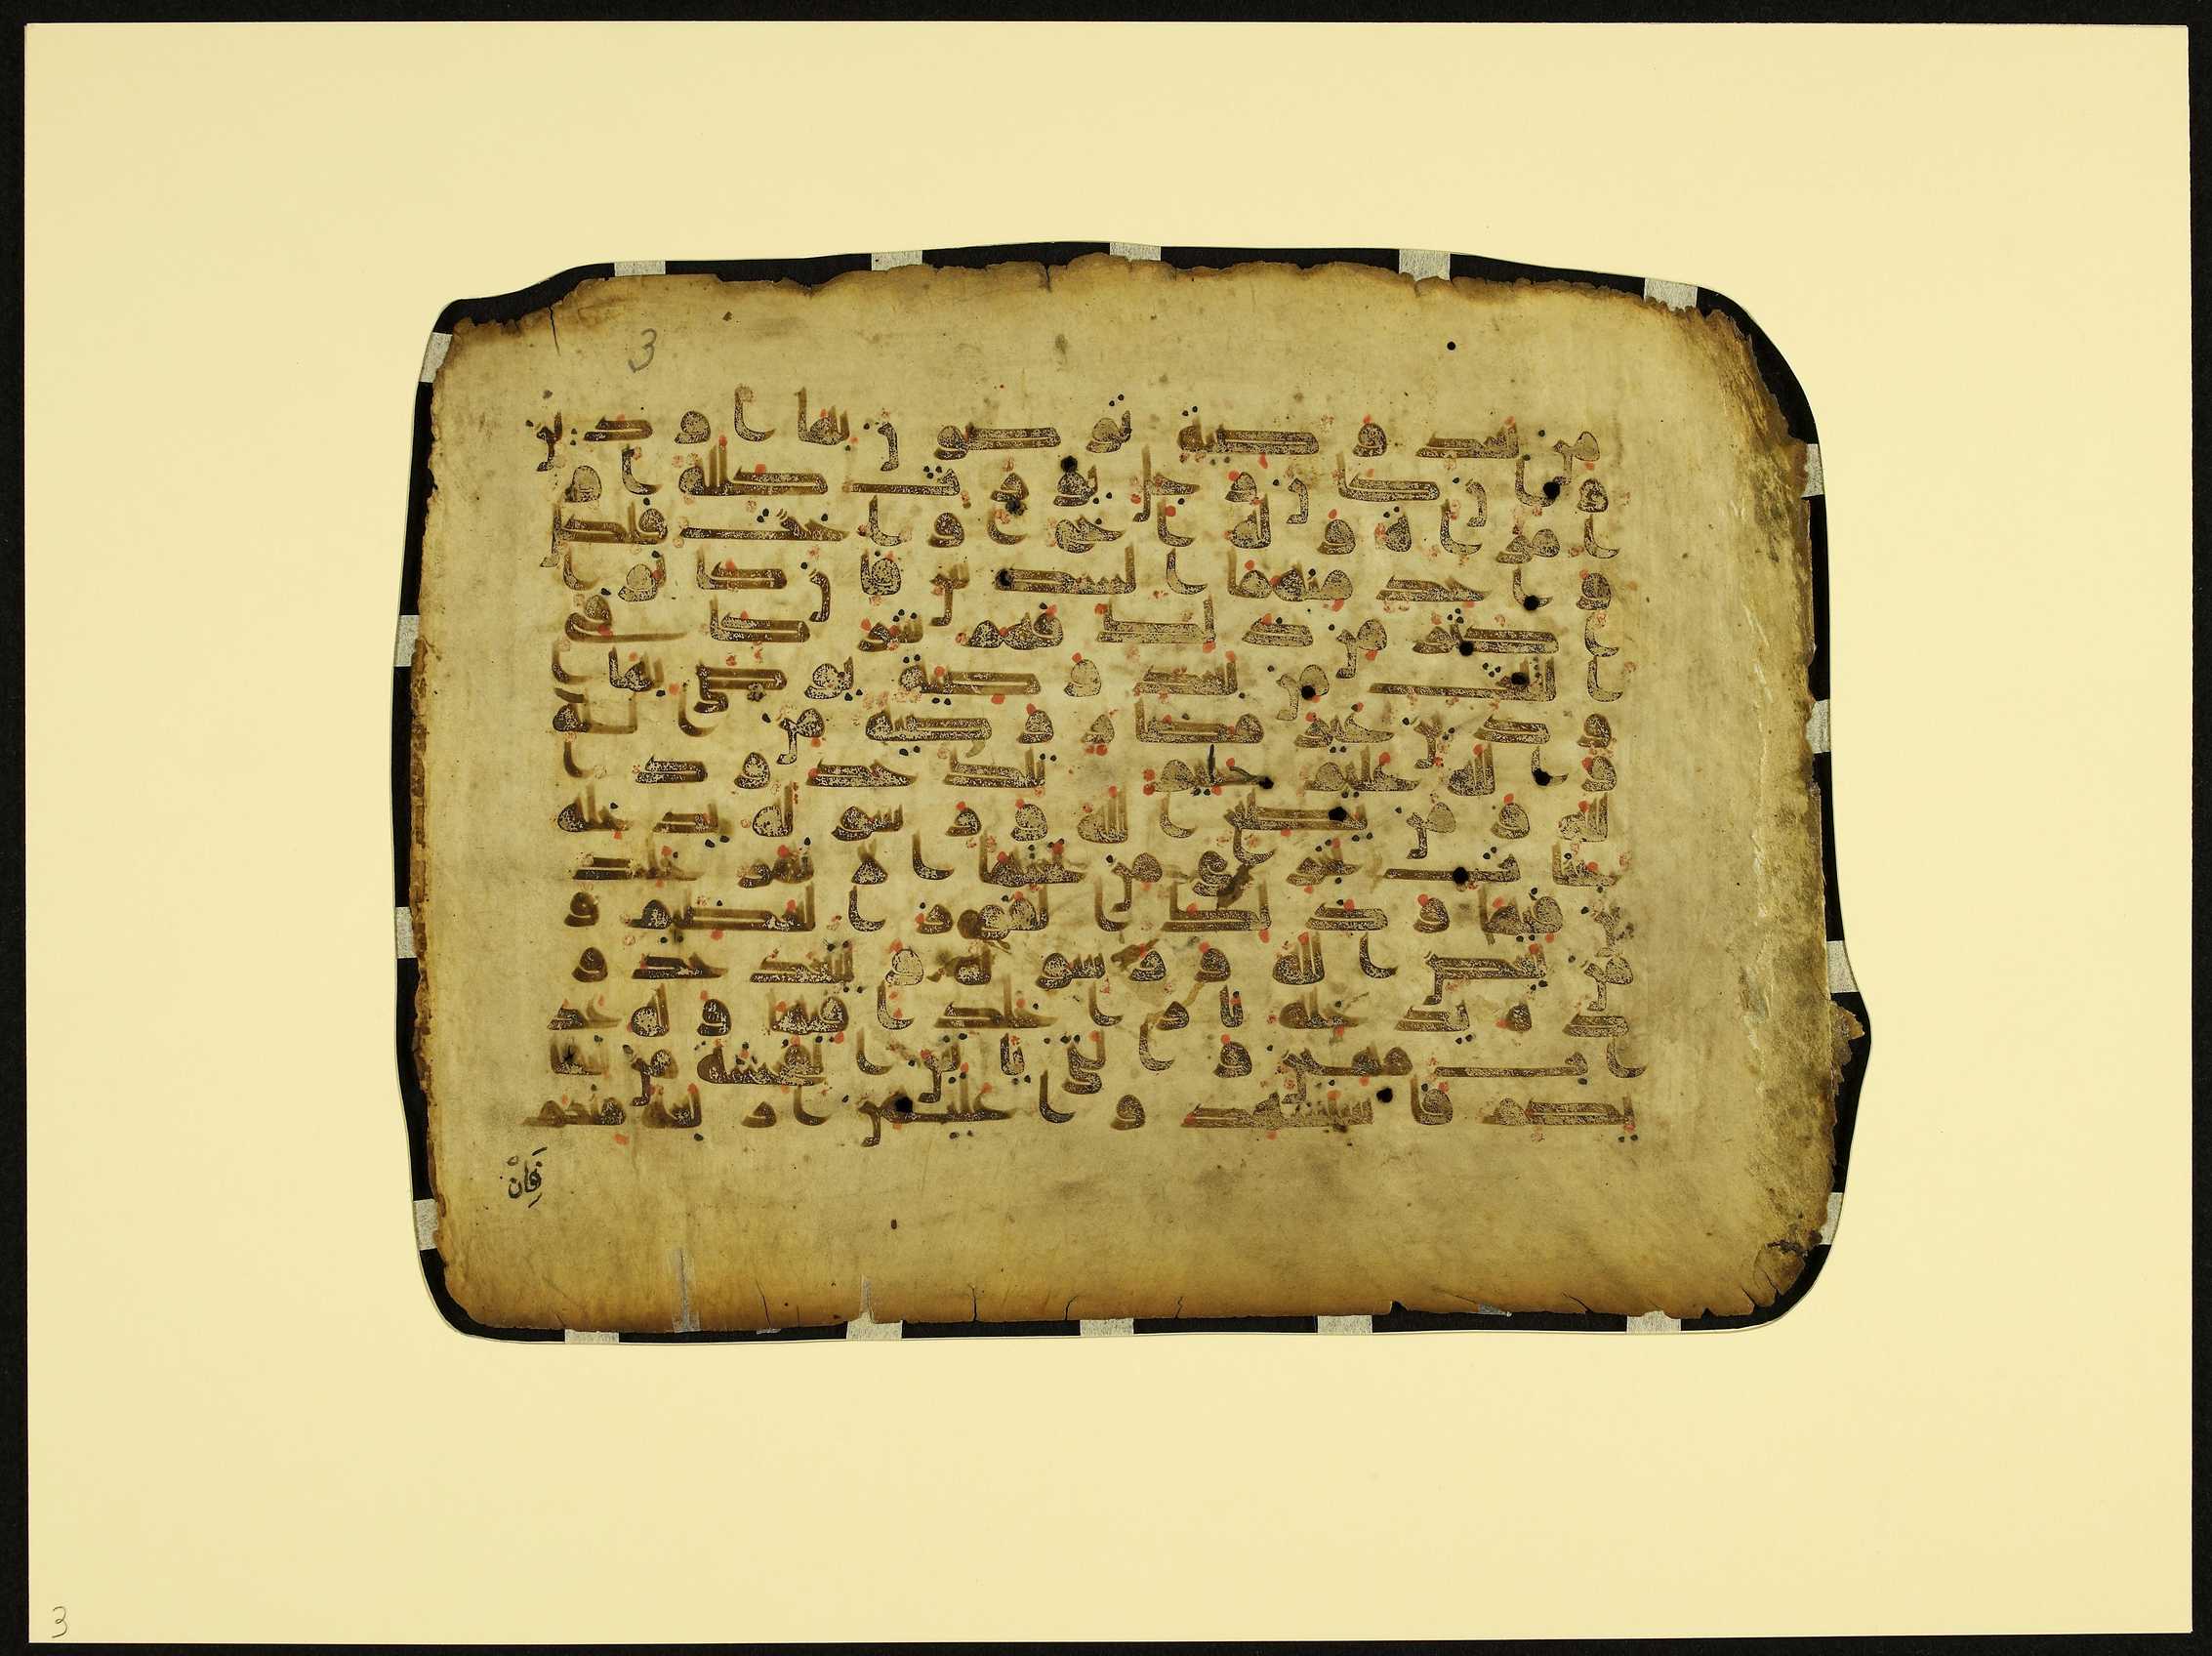 3
من بعد وصية توصون بها او دين
وان كان رجل يورث كللة او
امراة وله اخ او اخت فلكل
وحد منهما السدس فان كانوا
اكثر من ذلك فهم شركا في
الثلث من بعد وصية يوصى بها ا
و دين غير مضار وصية من الله
والله عليم حليم تلك حدود
الله ومن يطع الله ورسوله يدخله
جنت تجري من تحتها الانهر خلد
ين فيها وذلك الفوز العظيم و
من يعص الله ورسوله ويتعد حدو
ده يدخله نارا خلدا فيها وله عذ
اب مهين والتي ياتين الفحشة من نسا
يكم فاستشهدوا عليهن اربعة منكم
فَإِنْ
3